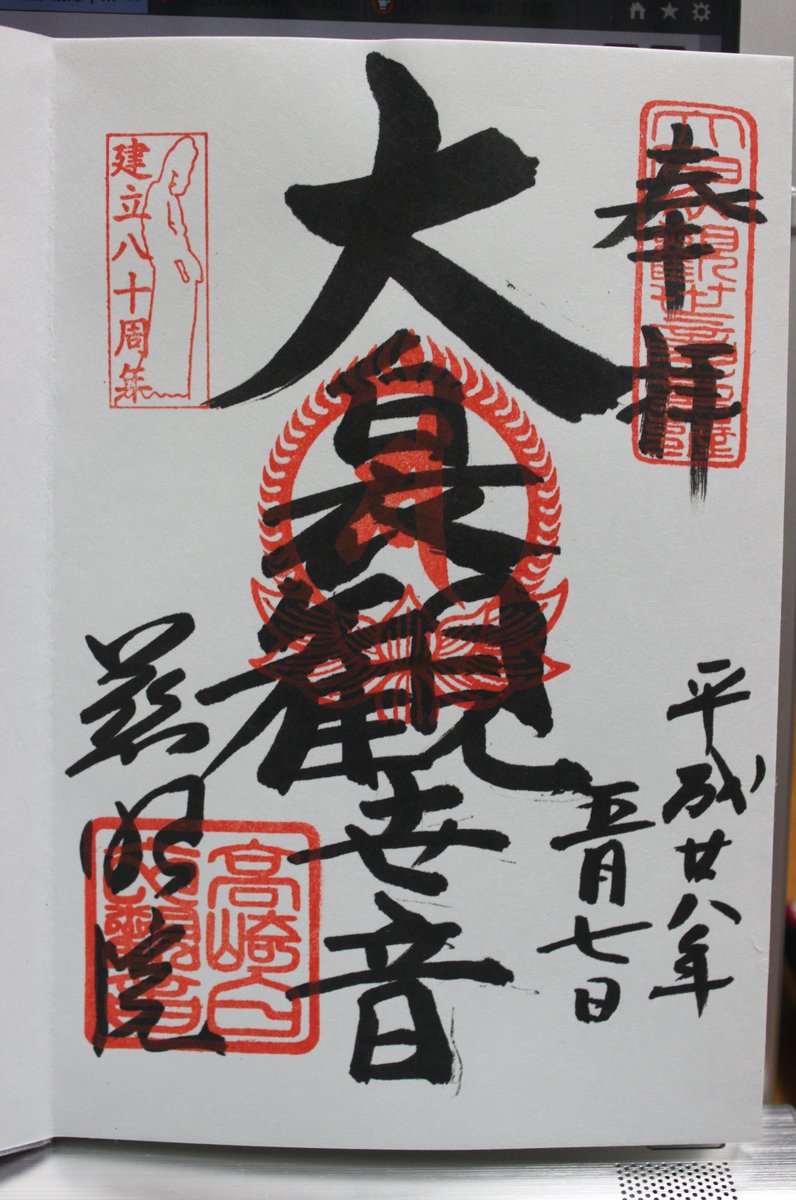 奉拝
平成廿八年
五月七日
大白衣観世音
建立八十周年
慈眼院
高崎白
衣觀音